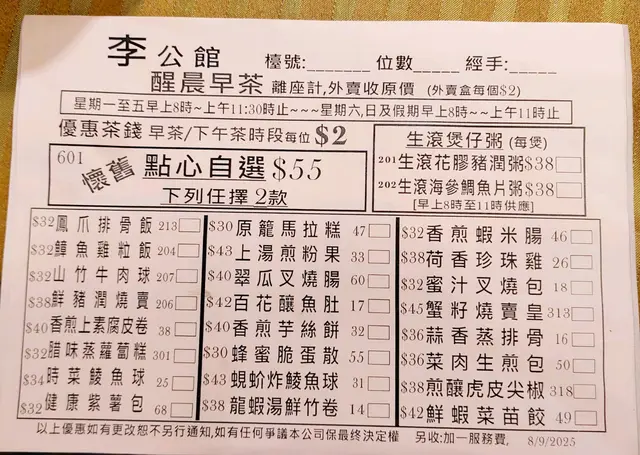 李公館 檯號:_______ 位數_____ 經手:_____
醒晨早茶 離座計,外賣收原價 (外賣盒每個$2)
星期一至五早上8時~上午11:30時止~~~星期六,日及假期早上8時~~上午11時止
優惠茶錢 早茶/下午茶時段每位$2
601 懷舊 點心自選$55
下列任擇2款
生滾煲仔粥(每煲)
201生滾花膠豬潤粥$38
202生滾海參鯛魚片粥$38
[早上8時至11時供應]
$32鳳爪排骨飯 213
$32鱆魚雞粒飯 204
$32山竹牛肉球 207
$38鮮豬潤燒賣 206
$40香煎上素腐皮卷 38
$32腊味蒸蘿蔔糕 301
$34時菜鯪魚球 25
$32健康紫薯包 68
$30原籠馬拉糕 47
$43上湯煎粉果 33
$40翠瓜叉燒腸 60
$42百花釀魚肚 17
$40香煎芋絲餅 32
$30蜂蜜脆蛋散 55
$43蜆蚧炸鯪魚球 31
$38龍蝦湯鮮竹卷 14
$32香煎蝦米腸 46
$38荷香珍珠雞 26
$32蜜汁叉燒包 18
$45蟹籽燒賣皇 313
$36蒜香蒸排骨 16
$36菜肉生煎包 50
$38煎釀虎皮尖椒 318
$42鮮蝦菜苗餃 49
以上優惠如有更改恕不另行通知,如有任何爭議本公司保最終決定權 另收:加一服務費, 8/9/2025